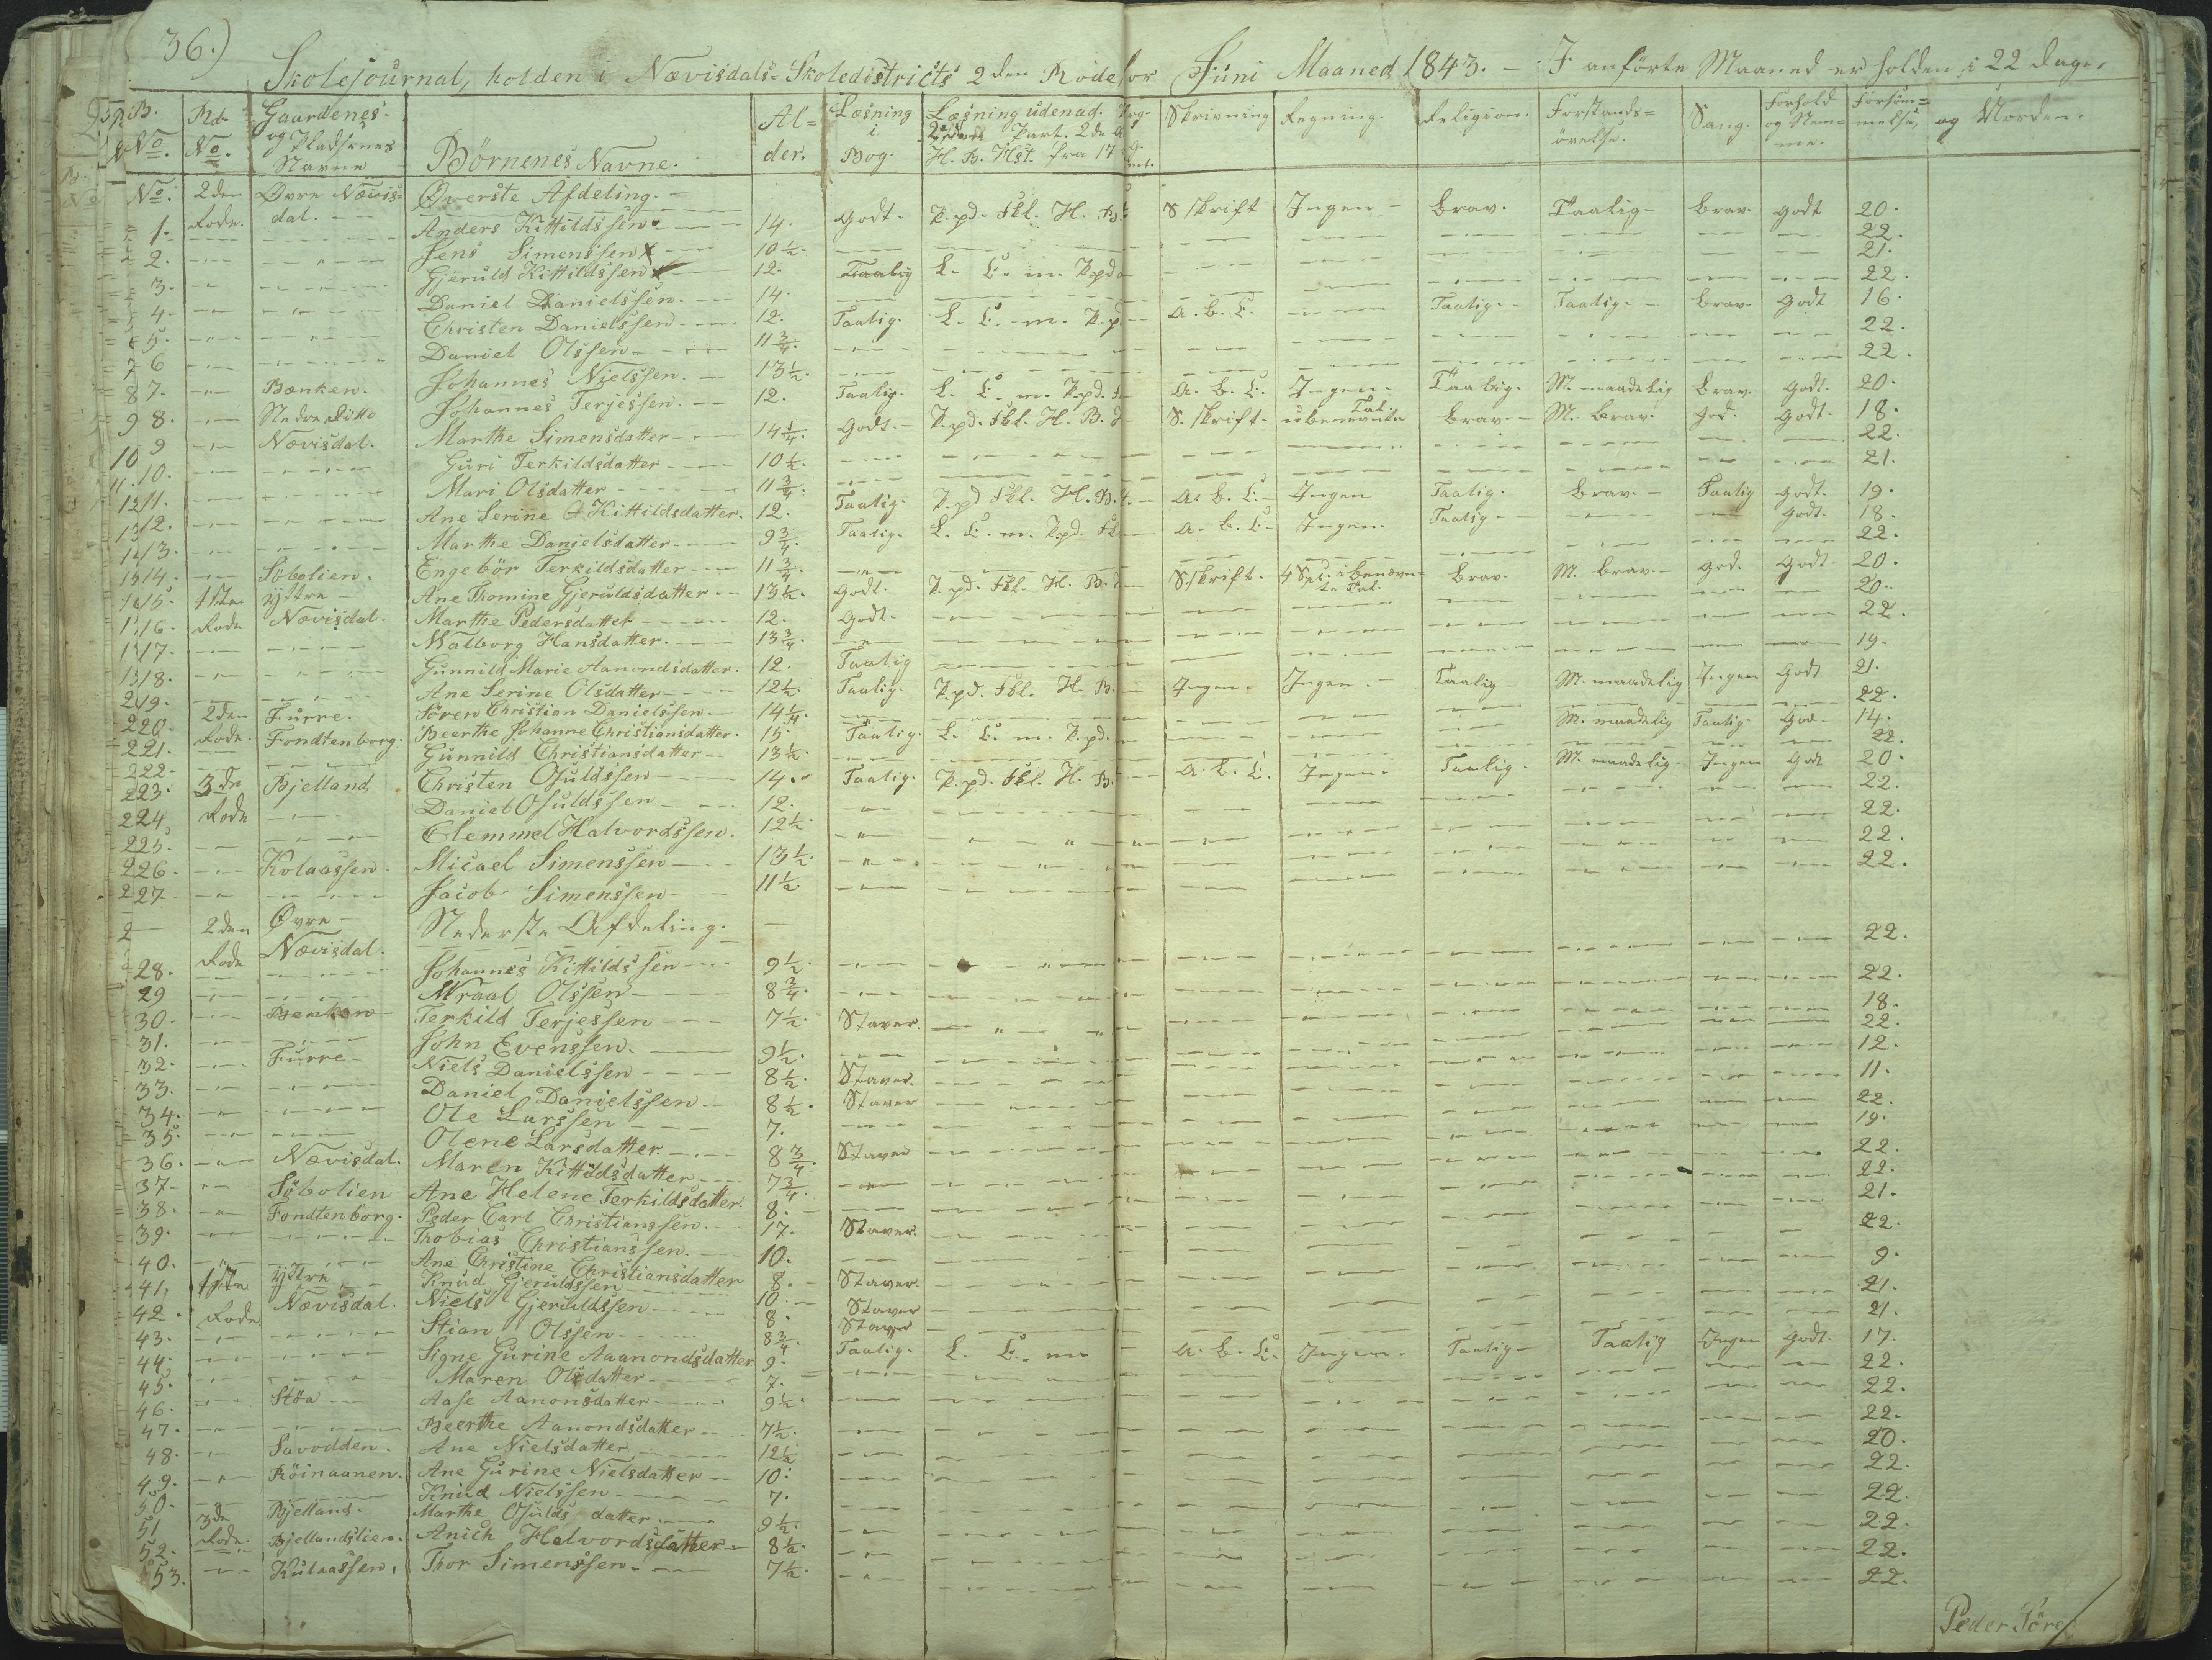 36.)
Skolejournal, holden i Nævisdals-Skoledistricts 2den Rode for Juni Maaned 1843. - I anførte Maaned er holden i 22 dage.
B. No. Rd. No. Gaardenes og Pladsenes Navne Børnenes Navne. Alder. Læsning i Bog. Læsning udenad. Skrivning Regning. Religion. Forstands=øvelse. Sang. Forhold og Nemme. Forsømmelse, og Morden.
No. 2den Rode. Øvre Nævisdal. Øverste Afdeling.
1. Anders Kittildssen 14. Godt. P.pd. Fkl. H. B. S Skrift Ingen brav. Taalig brav. godt 20.
2. Jens Simenssen x 10½. 22.
3. Gjeruld Kittildssen x 12. Taalig L. C. m. P.pd 21.
4. Daniel Danielssen. 14. 22.
5. Christen Danielssen 12. Taalig. L. C. m. P.p. A. B. C. Taalig. Taalig. brav. godt 16.
6 Daniel Olssen 11¾. 22.
7. Bænken. Johannes Nielssen. 13½. 22.
8. Nedre ditto Johannes Terjessen. 12. Taalig. L. C. m. P.pd. A. B. C. Ingen. Taalig. M. maadelig brav. godt. 20.
9 Nævisdal. Marthe Simensdatter 14¼. Godt. P.pd. Fkl. H. B. S. Skrift. ubenevnte Tal brav. M. brav. god. godt. 18.
10. Guri Terkildsdatter 10½. 22.
11. Mari Olsdatter 11¾. 21.
12. Ane Serine Kittildsdatter. 12. Taalig. P.pd Fkl. H. B. A. B. C. Ingen Taalig. brav. Taalig godt. 19.
13. Marthe Danielsdatter 9¾. Taalig. L. C. m. P.pd. A. B. C. Ingen. Taalig godt. 18.
14. Söbolien. Engebör Terkildsdatter 11¾. 22.
15. 1ste Rode yttre Nævisdal. Ane Thomine Gjeruldsdatter 13½. godt. P.pd. Fkl. H. B. S. Skrift. brav. M. brav. god. godt. 20.
16. Marthe Pedersdatter 12. godt. 20.
17. Walborg Hansdatter. 13¾. 22.
18. Gunnild Marie Aanondsdatter. 12. Taalig 19.
19. Ane Serine Olsdatter 12½. Taalig. P.pd. Fkl. H. B. Ingen. Ingen. Taalig M. maadelig Ingen godt 21.
20. 2den Rode. Furre. Søren Christian Danielssen 14¼. 22.
21. Fondtenborg. Beerthe Johanne Christiansdatter. 15. Taalig. L. C. m. P.pd. M. maadelig Taalig. god. 14.
22. Gunnild Christiansdatter 13½. 22.
23. 3de Rode Bjelland Christen Osuldssen 14. Taalig. P.pd. Fkl. H. B. A. B. C. Ingen. Taalig. M. maadelig. Ingen godt 20.
24. Daniel Osuldssen 12. 22.
25. Clemmel Halvordssen. 12½. 22.
26. Kolaassen. Micael Simenssen 13½. 22.
27. Jacob Simenssen 11½ 22.
2den Rode Øvre Nævisdal. Nederste Afdeling.
28. Johannes Kittildssen 9½. 22.
29 Wraal Olssen 8¾. 22.
30. Benken Terkild Terjessen 7½. Staver. 18.
31. John Evenssen. 9½. 22.
32. Furre Niels Danielssen 8½. Staver. 12.
33. Daniel Danielssen 8½. Staver 11.
34. Ole Larssen 7. 22.
35. Olene Larsdatter 8¾. Staver 19.
36. Nævisdal. Maren Kittildsdatter 7¾. 22.
37. Söbolien Ane Helene Terkildsdatter. 8. 22.
38. Fondtenborg. Peder Carl Christianssen. 17. Staver. 21.
39. Thobias Christianssen. 10. 22.
40. Ane Christine Christiansdatter 8. Staver. 9.
41. 1ste Rode yttre Nævisdal. Knud Gjeruldssen 10. Staver 21.
42. Niels Gjeruldssen 8. Staver 21.
43. Stian Olssen 8¾. Taalig. L. C. m A. B. C. Ingen. Taalig Taalig Ingen godt. 17.
44. Signe Gurine Aaanondsdatter 9. 22.
45. Maren Olsdatter 7. 22.
46. Stöa Aase Aanonsdatter 9½. 22.
47. Beerthe Aanondsdatter 7½. 20.
48. Savodden. Ane Nielsdatter 12½ 22.
49. Röinaanen. Ane Gurine Nielsdatter 10. 22.
50. Knud Nielssen 7. 22.
51 3de Rode. Bjelland. Marthe Osuldsdatter 9½. 22.
52. Bjellandslien. Anich Halvordsdatter 8½. 22.
53. Kulaassen, Thor Simenssen. 7½.
Peder Söre